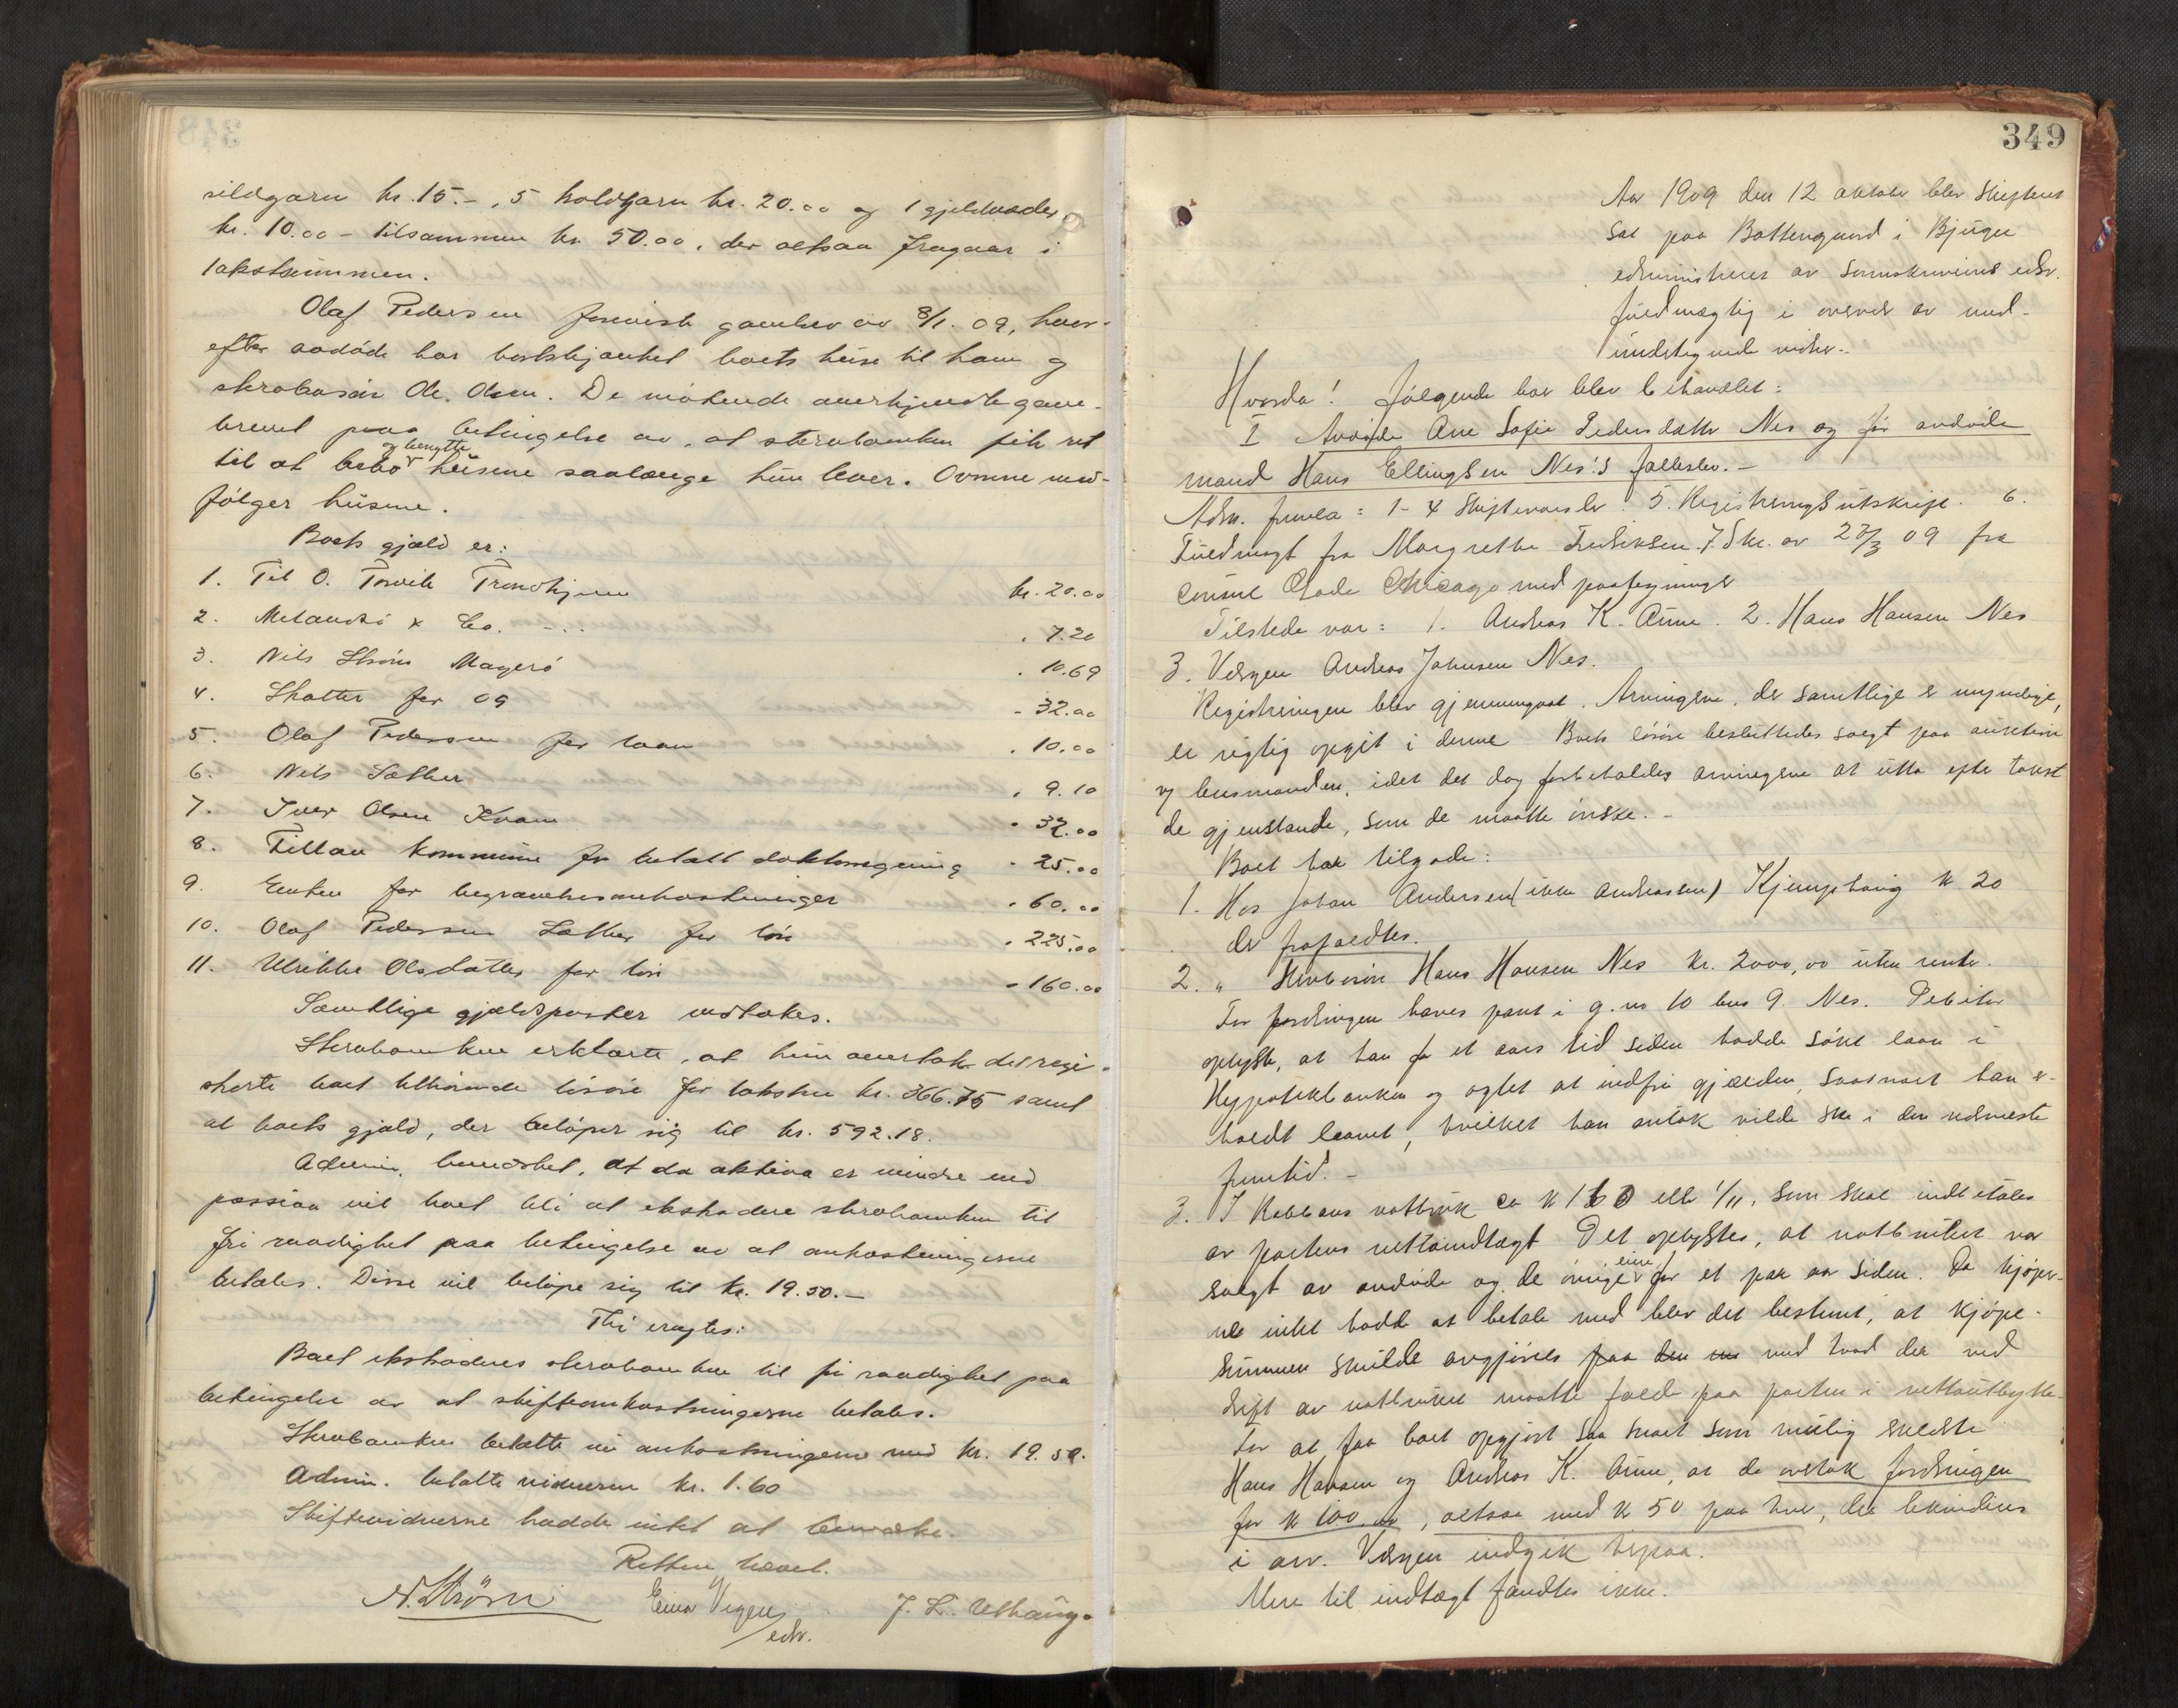 sildgarn kr. 15.-, 5 holdgarn kr. 20.00 og 1 gjeldvader
kr. 10.00 - tilsammen kr. 50.00, der altsaa fragaar i
takstsummen.
Olaf Pedersen foreviste gavebrev av 8/1. 09, hvor-
efter avdøde har bortskjænket boets huse til ham og
Ole Olsen. De møtende anerkjendte gave-
brevet paa betingelse av, at sterboenken fik ret
til at bebo og benytte husene saalænge hun lever. Ovnene med-
følger husene.
Boets gjæld er:
1. Til O. Trondhjem kr. 20.00
2. & Co. - . . . 7.20
3. Nils Strøm Magerø . 10.69
4. Skatter for 09 - 32.00
5. Olaf Pedersen for laan . 10.00
6. Nils Sæther . 9.10
7. Iver Olsen Kvam . 32.00
8. Fillan kommune for betalt doktorregning . 25.00
9. Enken for begravelsesomkostninger . 60.00
10. Olaf Pedersen Sæther for løn . 225.00
11. Ulrikke Olsdatter for løn - 160.00
Samtlige gjældsposter vedtokes.
Sterboenken erklærte, at hun overtok det regi-
strerte boet tilhørende løsøre for taksten kr. 366.75 samt
at boets gjæld, der beløper sig til kr. 592.18.
Admin. bemerket, at da aktiva er mindre end
passiva vil boet bli at ekstradere sterboenken til
fri raadighet paa betingelse av at omkostningerne
betales. Disse vil beløpe sig til kr. 19.50.-
Thi eragtes:
Boet ekstraderes sterboenken til fri raadighet paa
betingelse av at skifteomkostningerne betales.
Sterboenken betalte nu omkostningerne med kr. 19.50.
Admin. betalte vidnerne kr. 1.60
Skiftevidnerne hadde intet at bemerke.
Retten hævet.
N. Strøm Einar Vigen J. L. Ulhaug.
edsv.
349
Aar 1909 den 12 oktober blev skifteret
sat paa Bottengaard i Bjugn
administreret av sorenskriverens edsv.
fuldmægtig i overvær av med-
undertegnede vidner.-
Hvorda! Følgende boer blev behandlet:
I Avdøde Ane Sofie Pedersdatter Nes og før avdøde
mand Hans Ellingsen Nes's fællesbo.-
Adm. fremla: 1-4 Skiftevarsler. 5. Registreringsutskrift. 6.
Fuldmagt fra Margrethe Fredriksen. 7. Skr. av 27/3 09 fra
Consul Gade Chicago med paategninger
Tilstede var: 1. Andreas K. Aune. 2. Hans Hansen Nes
3. Vergen Andreas Johnsen Nes.
Registreringen blev gjennemgaat. Arvingerne, der samtlige er myndige,
er rigtig opgit i denne. Boets løsøre besluttedes solgt paa auktion
v/ lensmanden, idet det dog forbeholdtes arvingerne at utta efter takst
de gjenstande, som de maatte ønske.-
Boet har tilgode:
1. Hos Johan Andersen (ikke Andreassen) Kjemphaug kr 20
der frafaldtes.
2. " Sterbosøn Hans Hansen Nes kr. 2000,00 uten renter.
For fordringen haves pant i g.nr 10 bnr 9. Nes. Debitor
oplyste, at han for et aars tid siden hadde søkt laan i
Hypotekbanken og agtet at indfri gjælden, saasnart han er-
holdt laanet, hvilket han antok vilde ske i den nærmeste
fremtid.-
3. I notbruk ca kr 160 eller 1/11, som skal indbetales
av partens nettoindtægt. Det oplystes, at notbruket var
solgt av avdøde og de øvrige eiere for et par aar siden. Da kjøper-
ne intet hadde at betale med blev det bestemt, at kjøpe-
summen skulde avgjøres paa den med hvad der ved
drift av notbruket maatte falde paa parten i nettoutbytte.
For at faa boet opgjort saa snart som mulig
Hans Hansen og Andreas K. Aune, at de overtok fordringen
for kr 100.00, altsaa med kr 50 paa hver, der likvideres
i arv. Vergen indgik herpaa.
Mere til indtægt fandtes ikke.